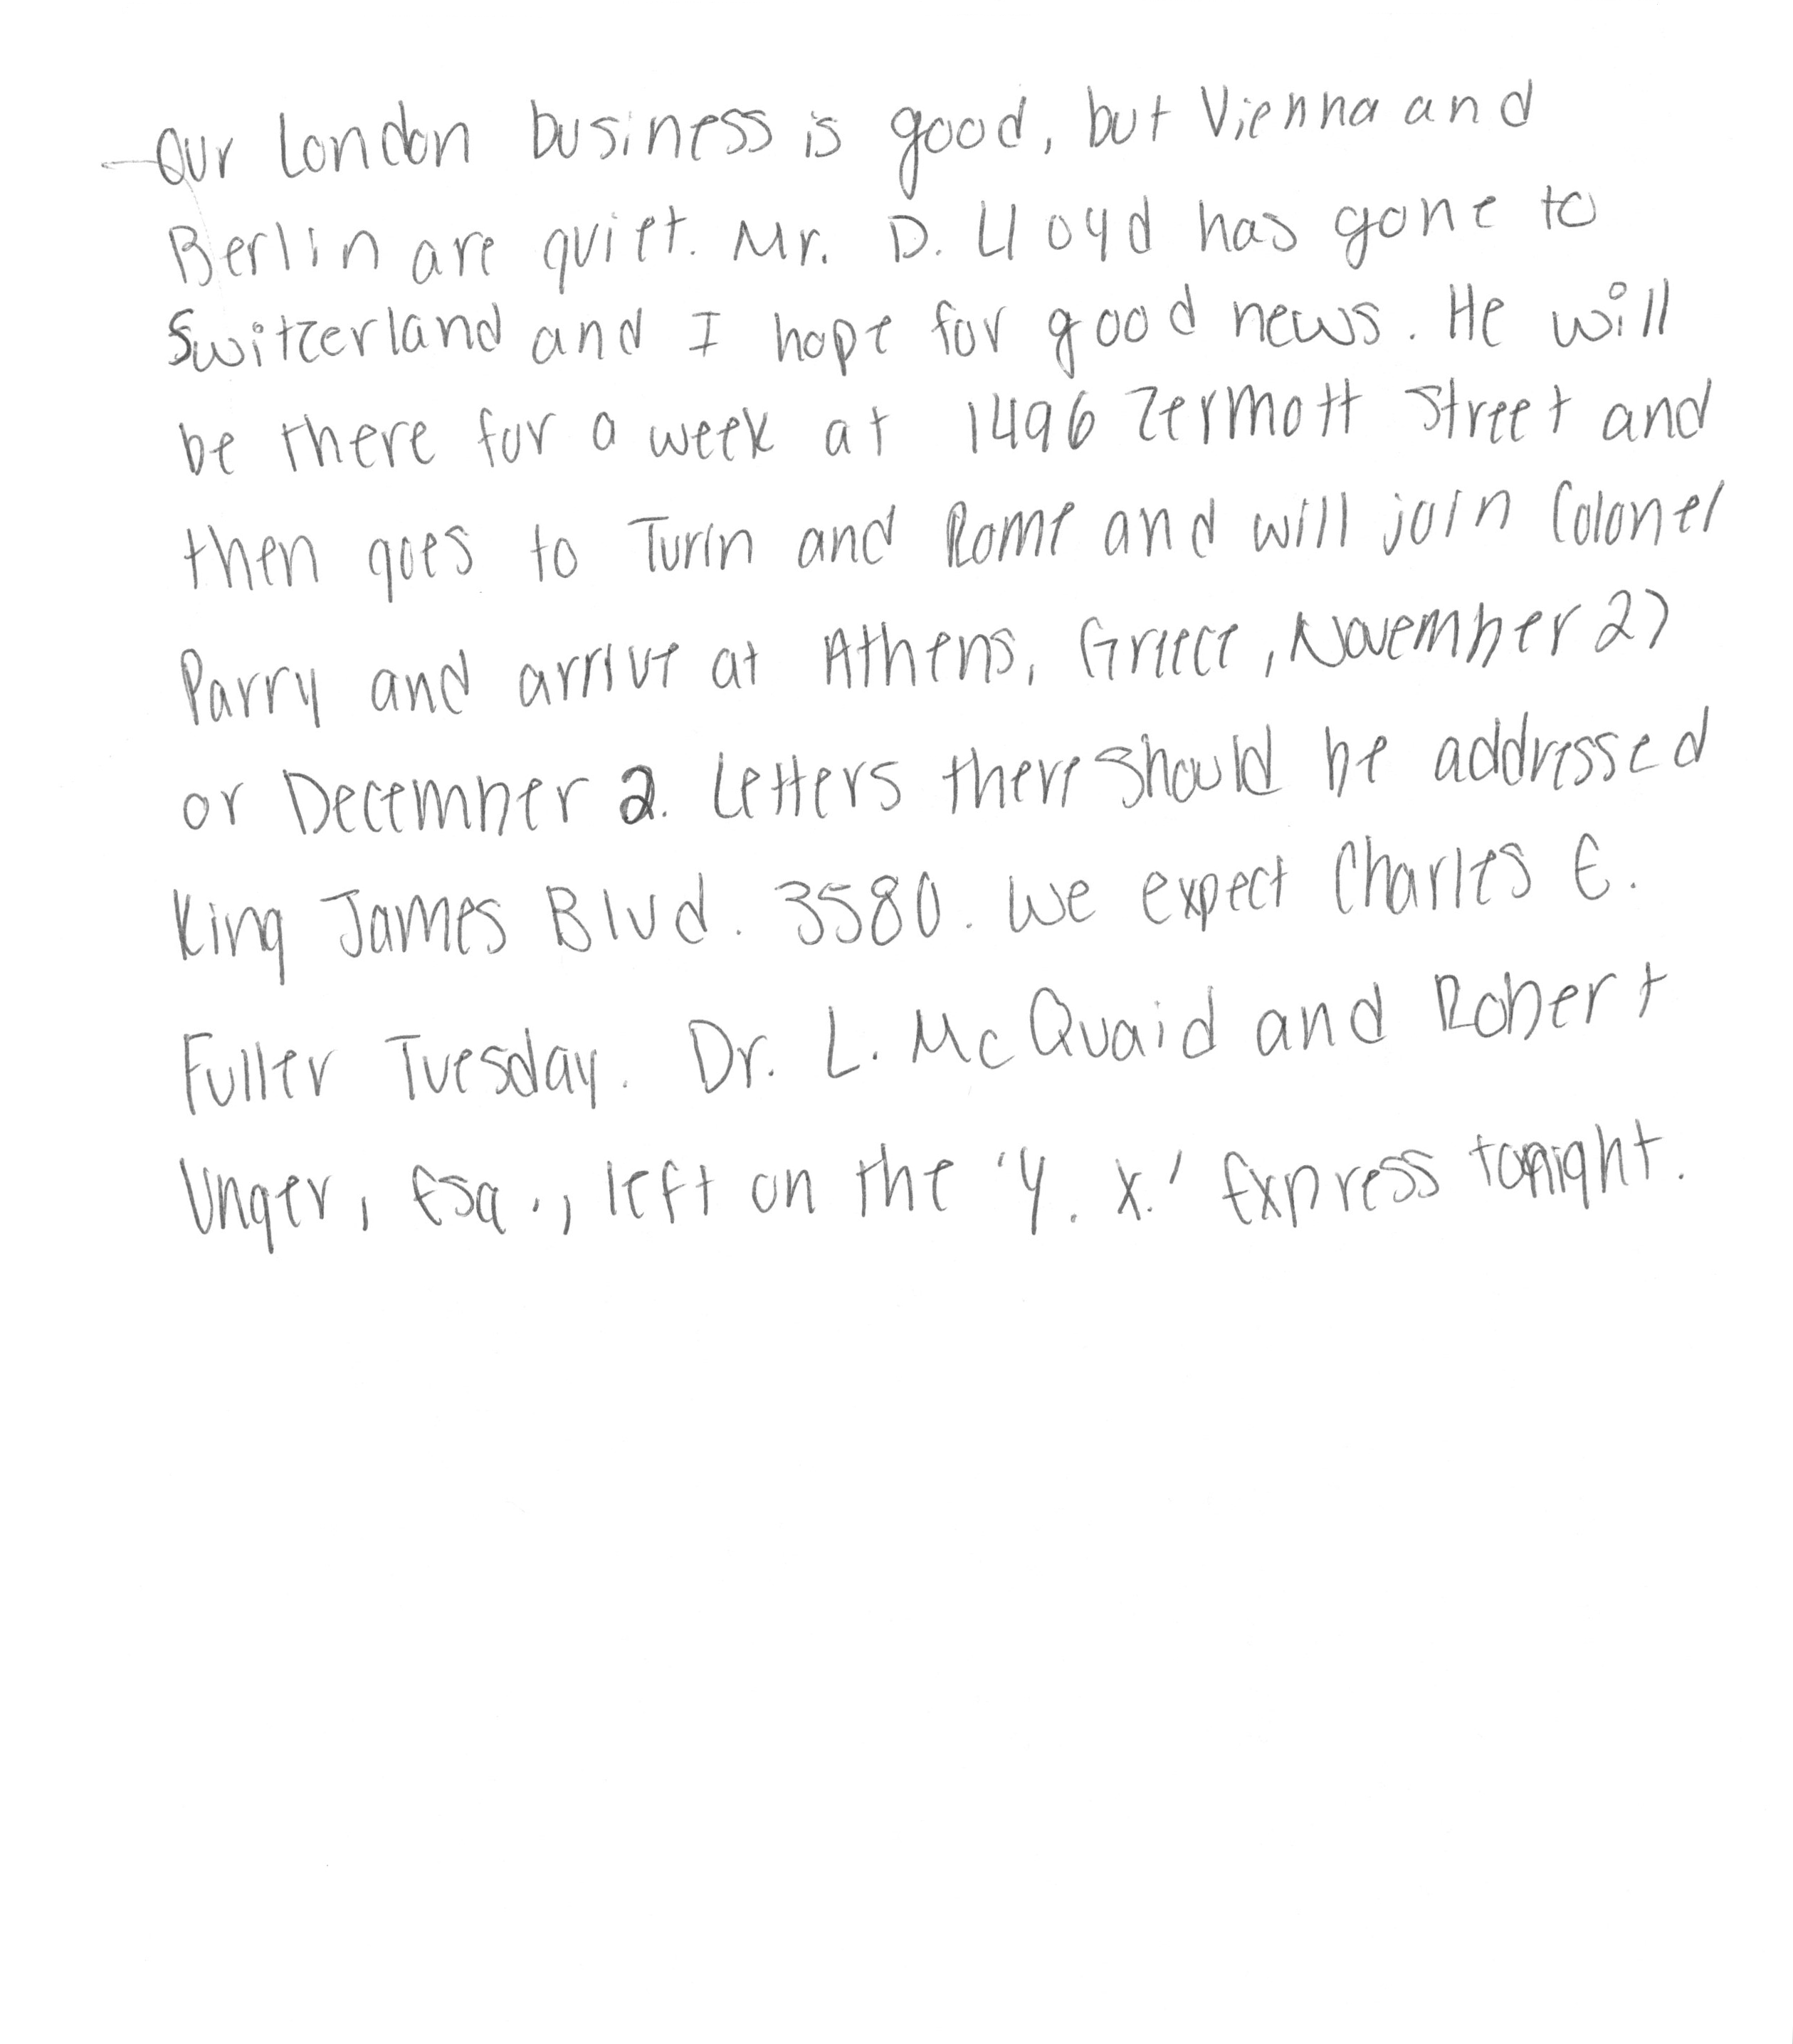 Our London business is good, but Vienna and
Berlin are quiet. Mr. D. Lloyd has gone to
Switzerland and I hope for good news. He will
be there for a week at 1496 Zermott Street and
then goes to Turin and Rome and will join Colonel
Parry and arrive at Athens, Greece, November 27
or December 2. Letters there should be addressed
King James Blvd. 3580. We expect Charles E.
Fuller Tuesday. Dr. L. McQuaid and Robert
Unger, Esq., left on the 'Y. X.' Express tonight.